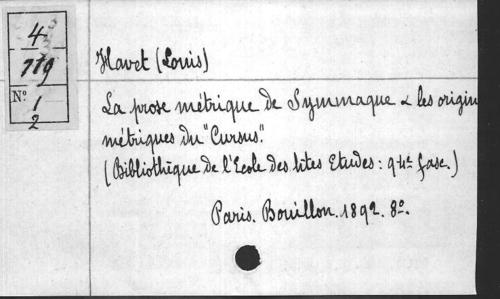 4
719
Nº 1
2
Havet (Louis)
La prose métrique de Symmaque & les origin
métriques du "Cursus".
(Bibliothèque de l'Ecole des htes Etudes: 94e fasc.)
Paris. Bouillon. 1892. 8º.